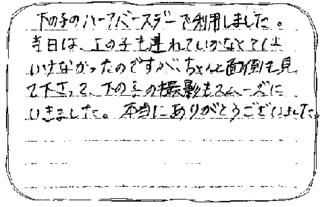 下の子のハーフバースデーで利用しました。
当日は、上の子も連れていかなくては
いけなかったのですが、ちゃんと面倒も見
て下さって、下の子の撮影もスムーズに
いきました。本当にありがとうございました。